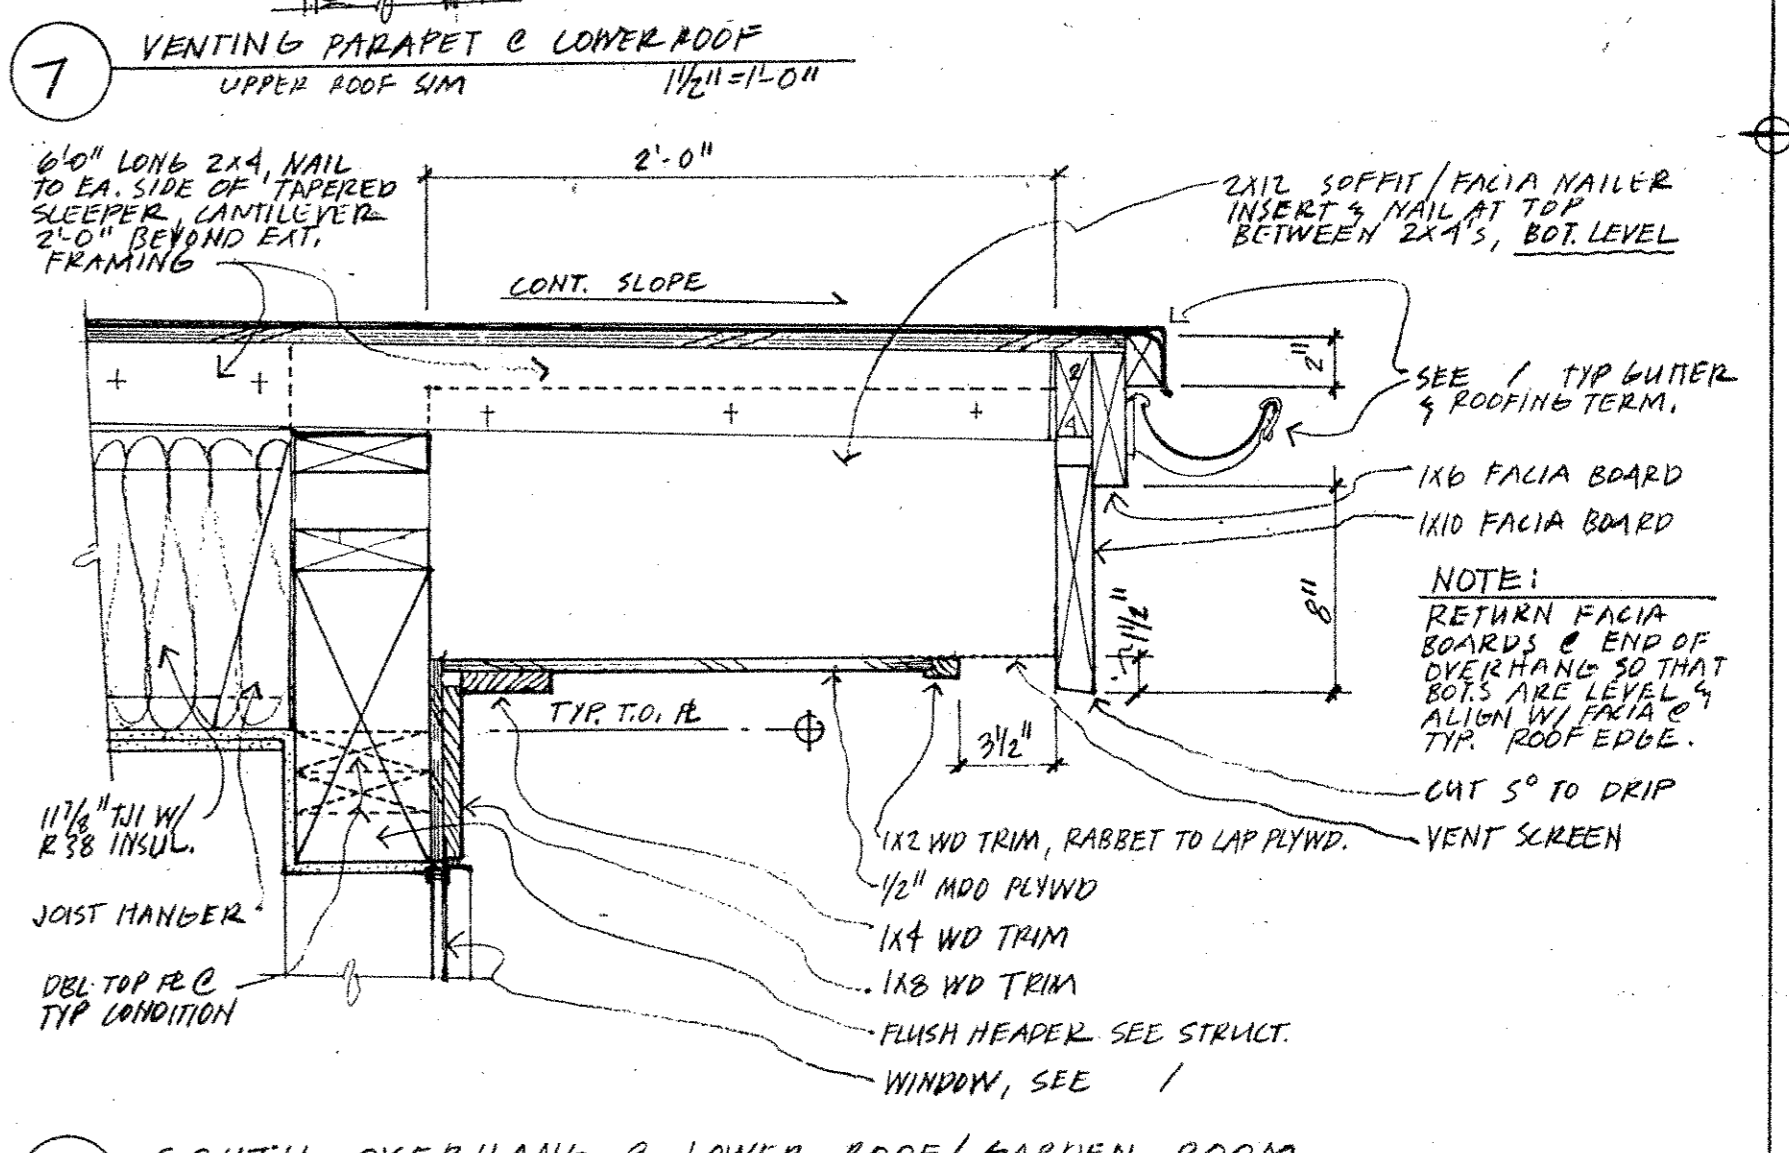 7
VENTING PARAPET @ LOWER ROOF
UPPER ROOF SIM
1 1/2"=1'-0"
6'0" LONG 2X4, NAIL
TO EA. SIDE OF TAPERED
SLEEPER, CANTILEVER
2'-0" BEYOND EXT.
FRAMING
2'-0"
2X12 SOFFIT/FACIA NAILER
INSERT & NAIL AT TOP
BETWEEN 2X4'S, BOT. LEVEL
CONT. SLOPE
2"
SEE / TYP GUTTER
& ROOFING TERM.
2
4
1X6 FACIA BOARD
1X10 FACIA BOARD
8"
1 1/2"
NOTE:
RETURN FACIA
BOARDS @ END OF
OVERHANG SO THAT
BOT.S ARE LEVEL &
ALIGN W/ FACIA @
TYP. ROOF EDGE.
TYP. T.O. PL
3 1/2"
CUT 5° TO DRIP
VENT SCREEN
11 7/8" TJI W/
R 38 INSUL.
1X2 WD TRIM, RABBET TO LAP PLYWD.
1/2" MDO PLYWD
JOIST HANGER
1X4 WD TRIM
1X8 WD TRIM
DBL TOP PL @
TYP CONDITION
FLUSH HEADER SEE STRUCT.
WINDOW, SEE /
SOUTH OVERHANG @ LOWER ROOF/GARDEN ROOM